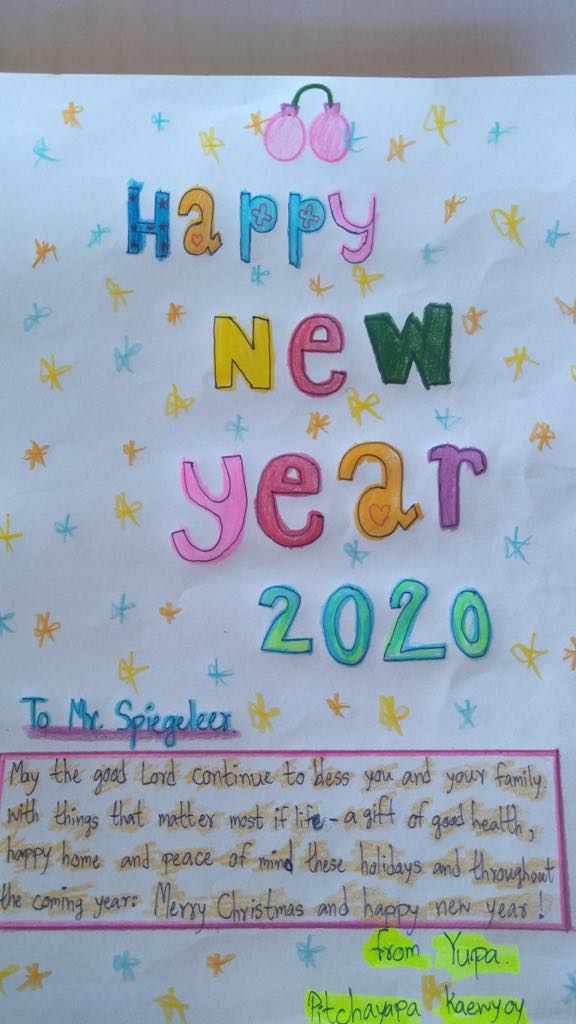 Happy
New
year
2020
To Mr. Spiegeleer.
May the good Lord continue to bless you and your family.
with things that matter most if life - a gift of good health,
happy home and peace of mind these holidays and throughout
the coming year: Merry Christmas and happy new year!
from Yupa.
Pitchayapa Kaewyoy